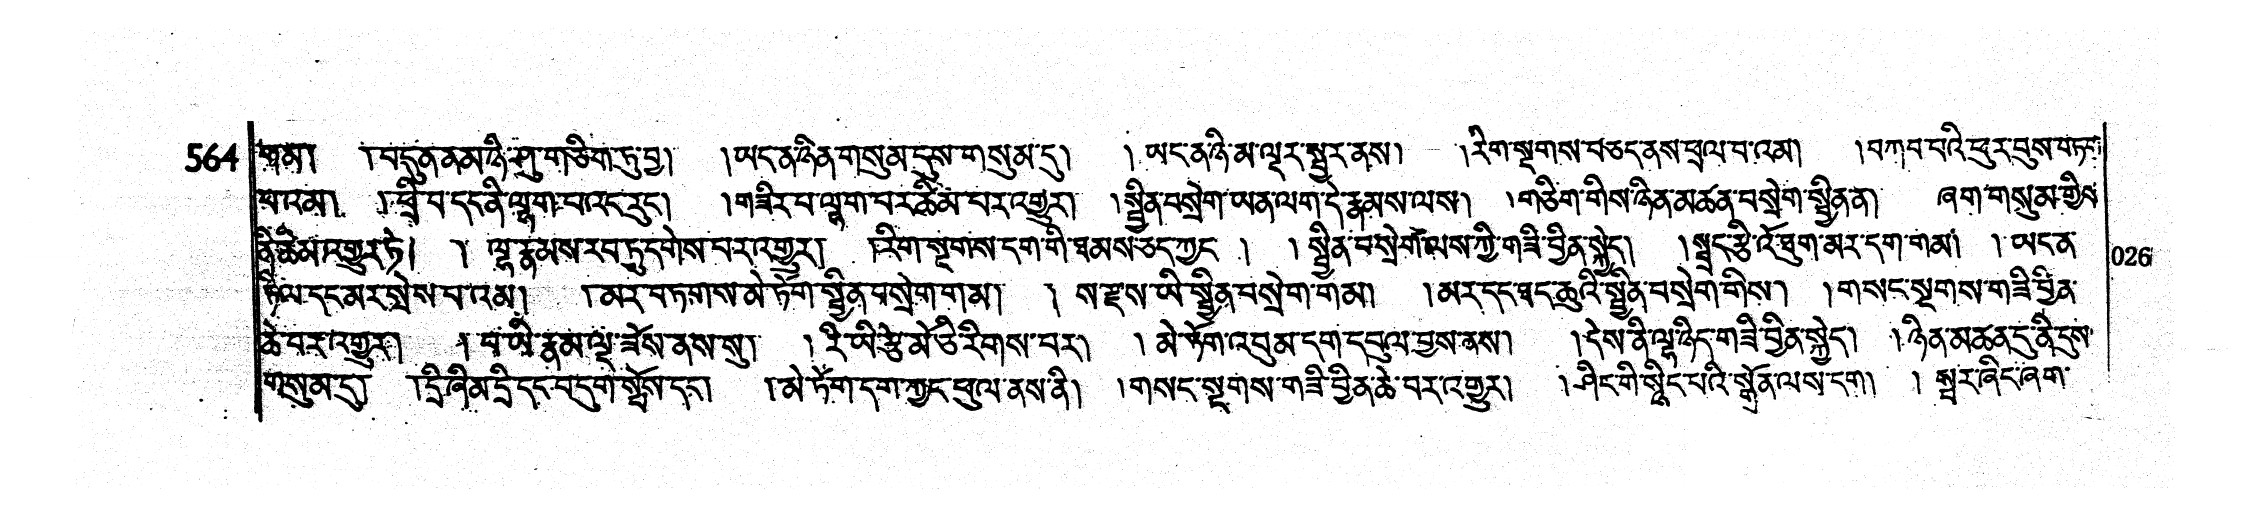 564 ཐམ། །བདུན་ནམ་ཉི་ཤུ་གཅིག་ཏུ་བྱ། །ཡང་ན་ཉིན་གསུམ་དུས་གསུམ་དུ། །ཡང་ན་ཉི་མ་ལྔར་སྦྱར་ནས། །རིག་སྔགས་བཅད་ནས་ཕྲལ་བ་འམ། །བཀབ་པའི་ཕུར་བུས་བཏབ་
པ་འམ། །ཕྲི་བ་དང་ནི་ལྷག་པ་འང་རུང་། །གཟིར་བ་ལྷག་པར་ཚིམ་པར་འགྱུར། །སྦྱིན་བསྲེག་ཡན་ལག་དེ་རྣམས་ལས། །གཅིག་གིས་ཉིན་མཚན་བསྲེག་སྦྱིན་ན། ཞག་གསུམ་གྱིས་
ནི་ཚིམ་འགྱུར་ཏེ། །ལྷ་རྣམས་རབ་ཏུ་དགེས་པར་འགྱུར། །རིག་སྔགས་དག་གི་ཐམས་ཅད་ཀྱང་། །སྦྱིན་བསྲེག་ལས་ཀྱི་གཟི་བྱིན་སྐྱེད། །སྦྲང་རྩི་འོ་ཐུག་མར་དག་གམ། །ཡང་ན་
ཏིལ་དང་མར་སྲེས་པ་འམ། །མར་བཏགས་མེ་ཏོག་སྦྱིན་བསྲེག་གམ། །ས་རྫས་ཡི་སྦྱིན་བསྲེག་གམ། །མར་དང་ཐང་ཆུའི་སྦྱིན་བསྲེག་གིས། །གསང་སྔགས་གཟི་བྱིན་
ཆེ་བར་འགྱུར། །པ་ཡི་རྣམ་ལྔ་ཟོས་ནས་སུ། །རི་ཡི་རྩེ་མོ་ཅི་རིགས་པར། །མེ་ཏོག་འབུམ་དག་དབུལ་བྱས་ནས། །དེས་ནི་ལྷ་ཉིད་གཟི་བྱིན་སྐྱེད། །ཉིན་མཚན་དུ་ནི་དུས་
གསུམ་དུ། །དྲི་ཞིམ་དྲི་དང་བདུག་སྤོས་དང་། །མེ་ཏོག་དག་ཀྱང་ཕུལ་ནས་ནི། །གསང་སྔགས་གཟི་བྱིན་ཆེ་བར་འགྱུར། །ཤིང་གི་སྙིང་པའི་སྒྲོན་ལས་དག །སྦར་ཞིང་ཞག་
026